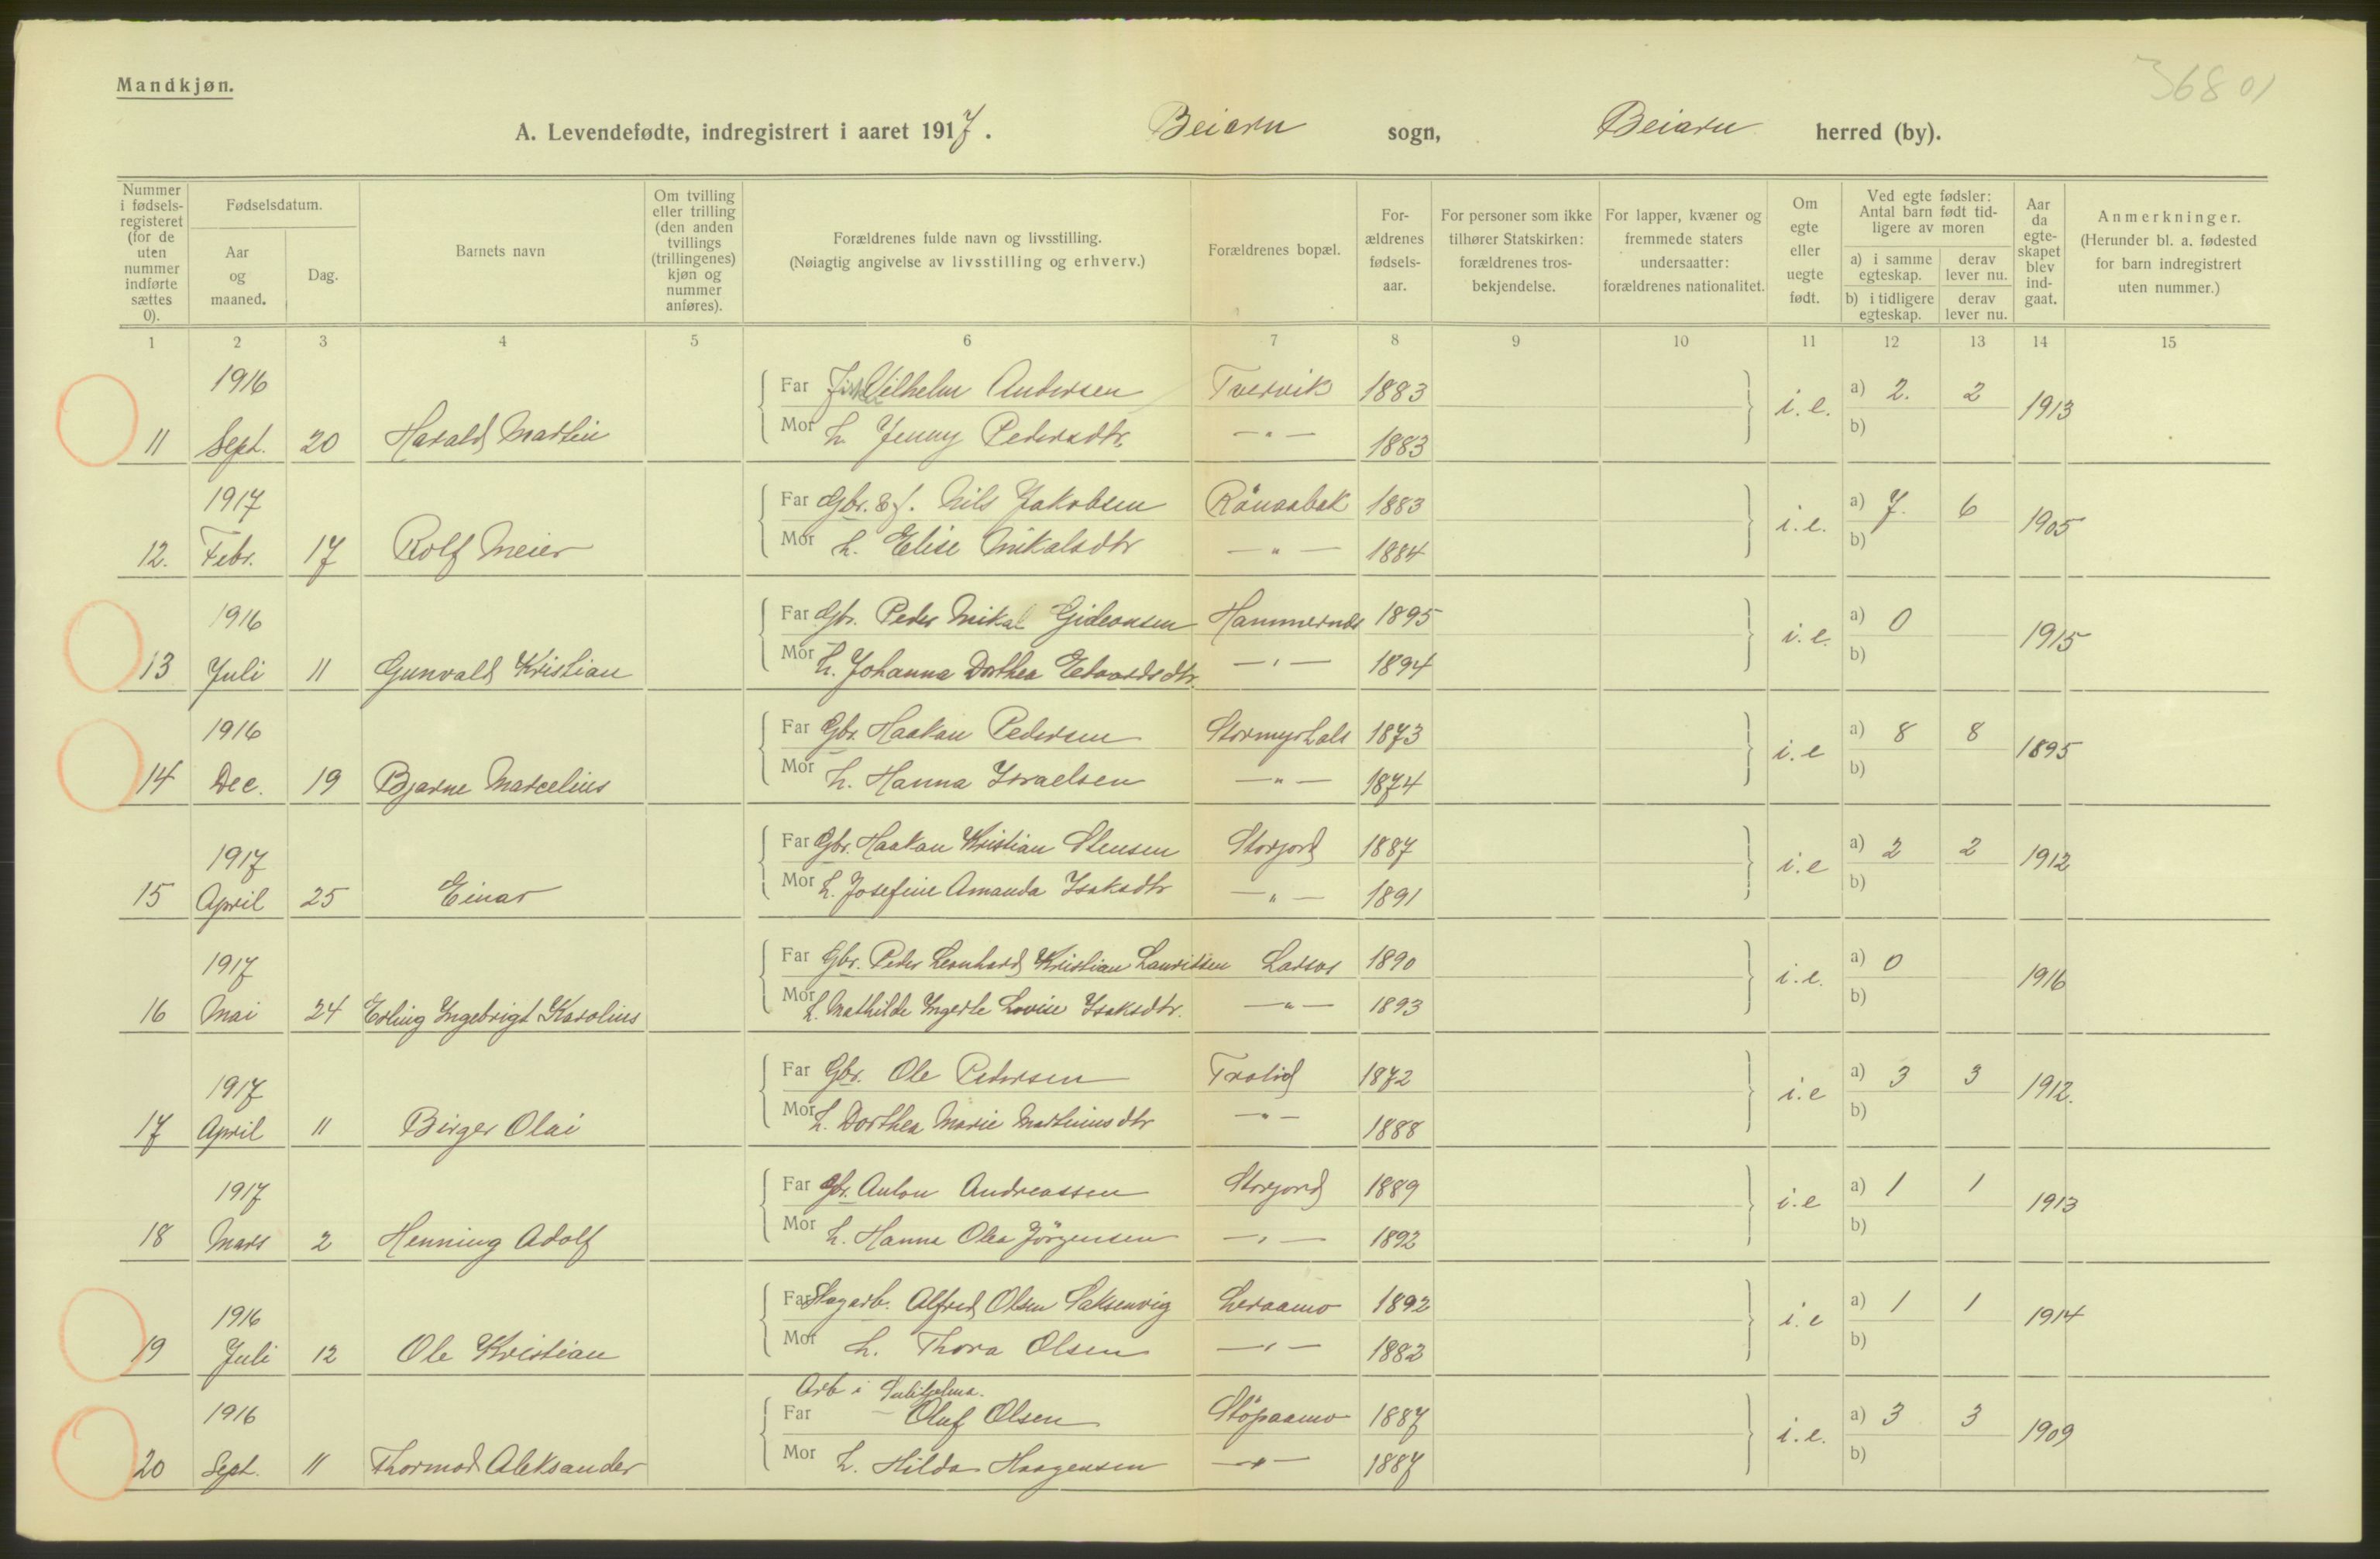 36801
Mandkjøn.
A. Levendefødte, indregistrert i aaret 1917. Beiarn sogn, Beiarn herred (by).
Nummer i fødsels-registeret (for de uten nummer indførte sættes 0).
Fødselsdatum.
Aar og maaned.
Dag.
Barnets navn
Om tvilling eller trilling (den anden tvillings (trillingenes) kjøn og nummer anføres).
Forældrenes fulde navn og livsstilling.
(Nøiagtig angivelse av livsstilling og erhverv.)
Forældrenes bopæl.
For-ældrenes fødsels-aar.
For personer som ikke tilhører Statskirken: forældrenes tros-bekjendelse.
For lapper, kvæner og fremmede staters undersaatter: forældrenes nationalitet.
Om egte eller uegte født.
Ved egte fødsler: Antal barn født tid-ligere av moren
a) i samme egteskap. derav lever nu.
b) i tidligere egteskap. derav lever nu.
Aar da egte-skapet blev ind-gaat.
Anmerkninger.
(Herunder bl. a. fødested for barn indregistrert uten nummer.)
1 2 3 4 5 6 7 8 9 10 11 12 13 14 15
1916 Far Vilhelm Andersen Tvervik 1883 i.e. a) 2. 2 1913
11 Sept. 20 Harald Martin Mor h. Jenny Pedersdtr. —"— 1883 b)
1917 Far Gbr. & f. Nils Jakobsen 1883 i.e. a) 7. 6 1905
12. Febr. 17 Rolf Meier Mor h. Elise Mikalsdtr —"— 1884 b)
1916 Far Gbr. Peder Mikal Gideonsen Hammernes 1895 i.e. a) 0 1915
13 Juli 11 Gunvald Kristian Mor h. Johanna Dorthea Edvardsdtr. —"— 1894 b)
1916 Far Gbr Haakon Pedersen 1873 i.e a) 8 8 1895
14 Dec. 19 Bjarne Marcelius Mor h. Hanna Israelsen —"— 1874 b)
1917 Far Gbr. Haakon Kristian Stensen Storjord 1887 i.e a) 2 2 1912
15 April 25 Einar Mor h. Josefine Amanda Isaksdtr —"— 1891 b)
1917 Far Gbr. Peder Leonhard Kristian Lauritsen Larsos 1890 i.e. a) 0 1916
16 Mai 24 Erling Ingebrigt Karolius Mor h. Mathilde Ingerte Lovise Isaksdtr. —"— 1893 b)
1917 Far Gbr. Ole Pedersen Trolid 1872 i.e a) 3 3 1912.
17 April 11 Birger Olai Mor h. Dorthea Marie Martiniusdtr —"— 1888 b)
1917 Far Gbr. Anton Andreassen Storjord 1889 i.e a) 1 1 1913
18 Mars 2 Henning Adolf Mor h. Hanna Olea Jörgensen —"— 1892 b)
1916 Far Alfred Olsen Saksenvig Leraamo 1892 i.e a) 1 1 1914
19 Juli 12 Ole Kristian Mor h. Thora Olsen —"— 1882 b)
Arb i Sulitjelma.
1916 Far Oluf Olsen Stöpaamo 1887 i.e. a) 3 3 1909
20 Sept. 11 Thormod Aleksander Mor h. Hilda Haagensen —"— 1887 b)